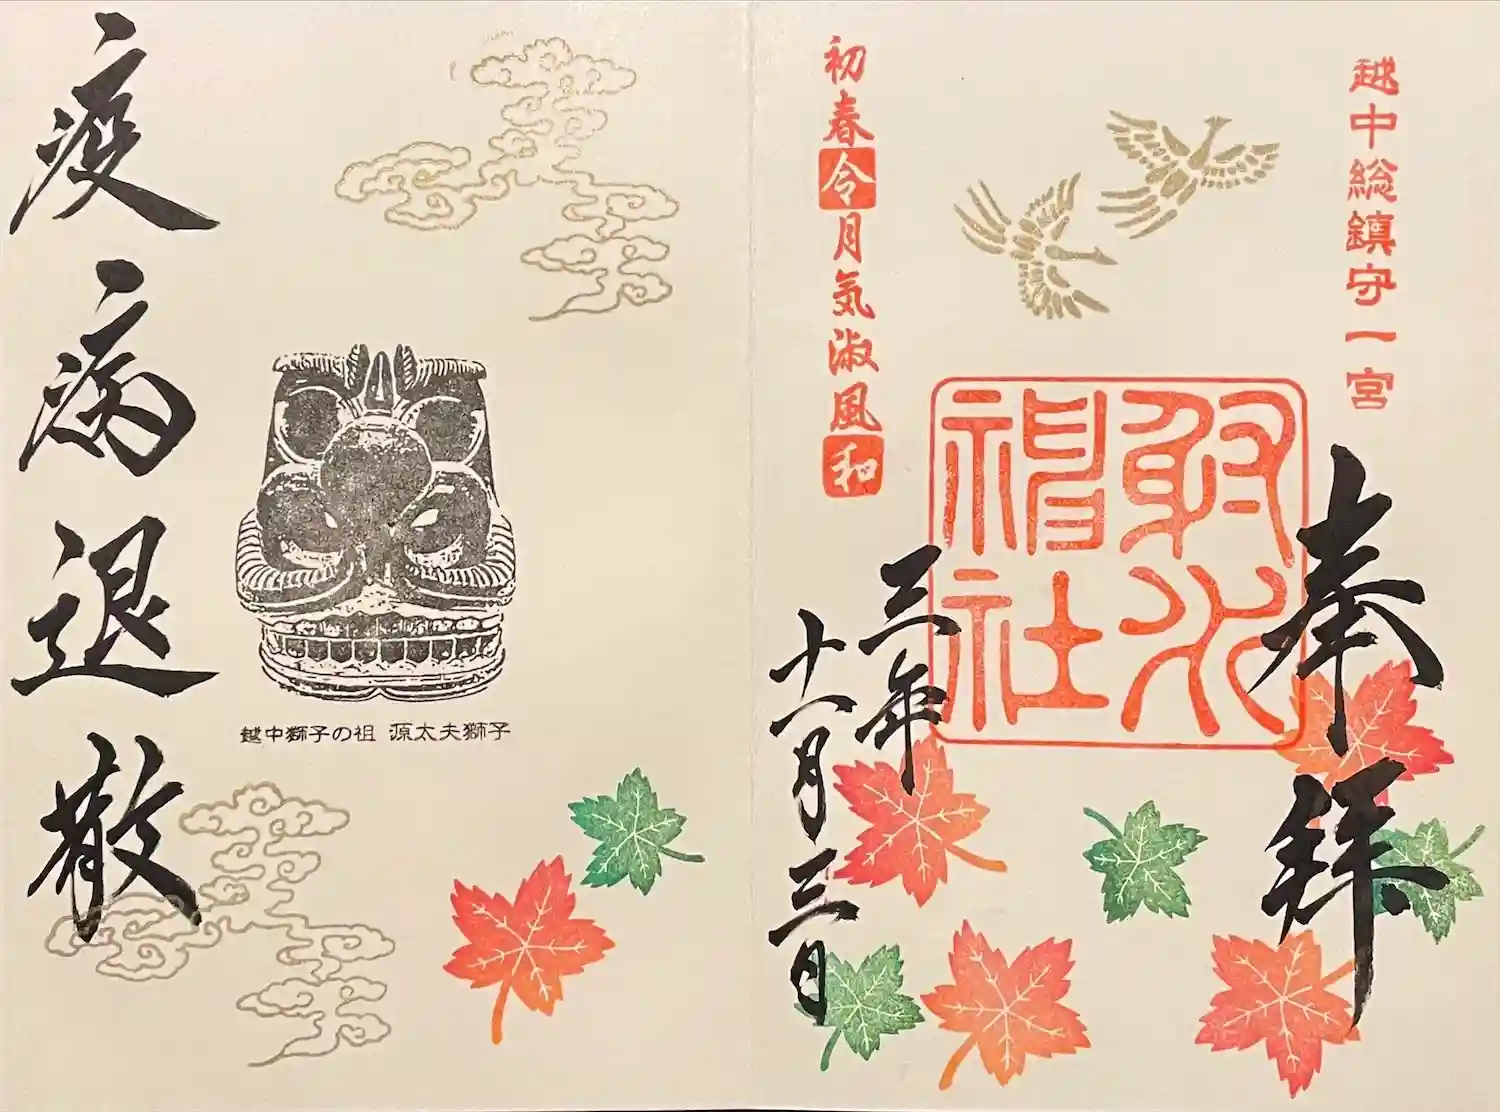 越中総鎮守一宮
奉拝
射水神社
初春令月気淑風和
三年
十一月三日
疫病退散
越中獅子の祖 源太夫獅子